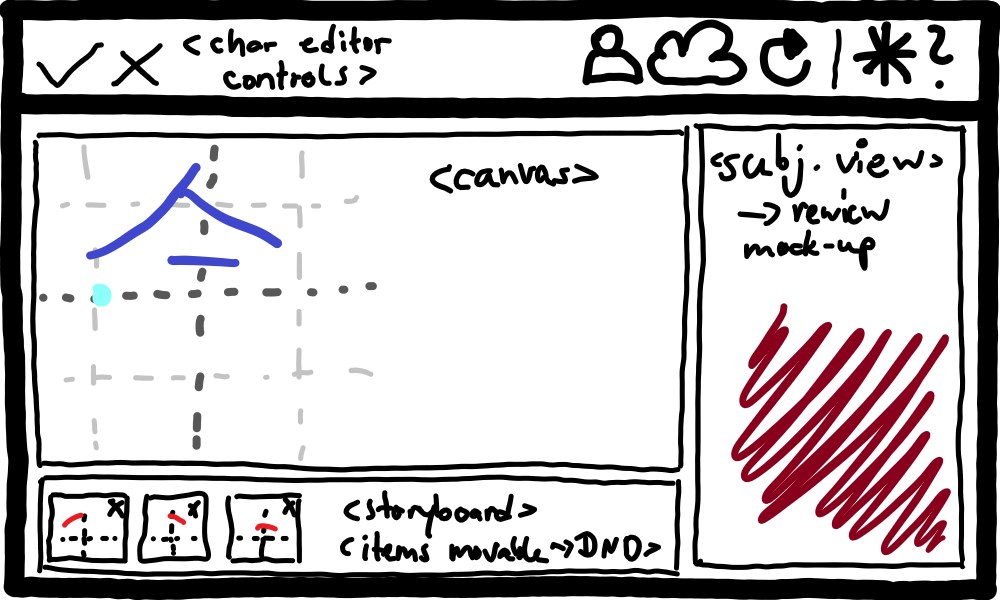 <char editor
controls>
?
<canvas>
<subj. view>
→ review
mock-up
x x x
<storyboard>
<items movable → DND>